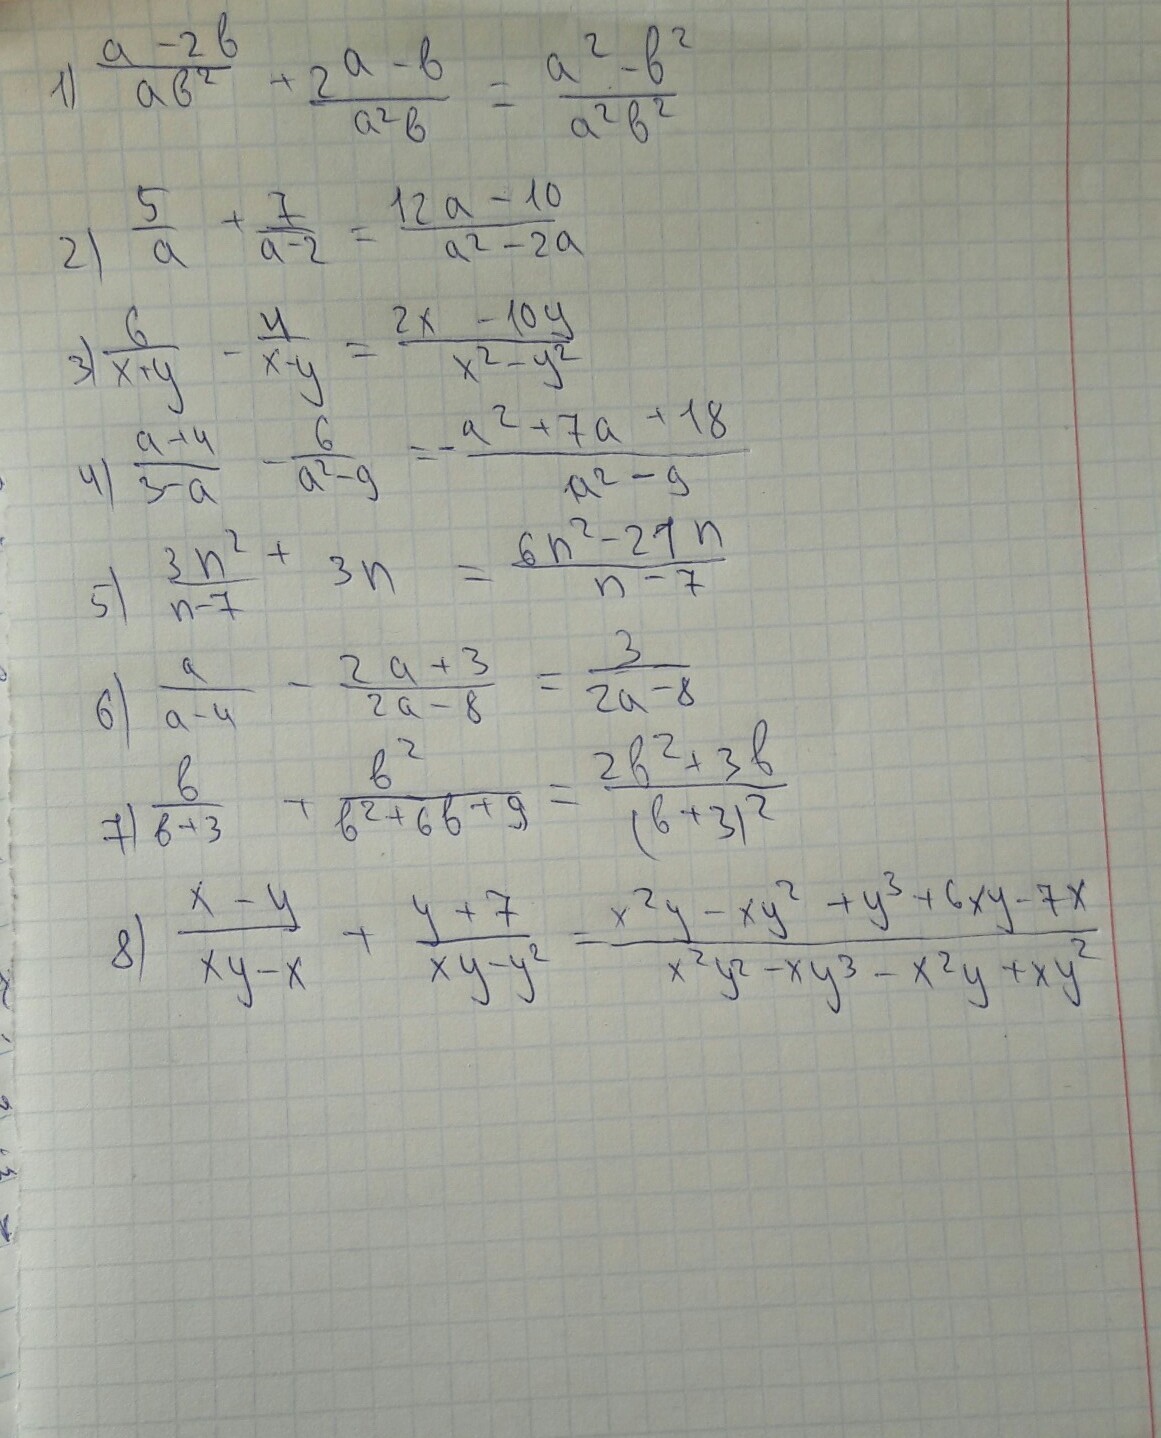 1) (a-2b)/(ab²) + (2a-b)/(a²b) = (a²-b²)/(a²b²)
2) 5/a + 7/(a-2) = (12a-10)/(a²-2a)
3) 6/(x+y) - 4/(x-y) = (2x-10y)/(x²-y²)
4) (a+4)/(3-a) - 6/(a²-9) = -(a²+7a+18)/(a²-9)
5) 3n²/(n-7) + 3n = (6n²-21n)/(n-7)
6) a/(a-4) - (2a+3)/(2a-8) = 3/(2a-8)
7) b/(b+3) + b²/(b²+6b+9) = (2b²+3b)/(b+3)²
8) (x-y)/(xy-x) + (y+7)/(xy-y²) = (x²y-xy²+y³+6xy-7x)/(x²y²-xy³-x²y+xy²)